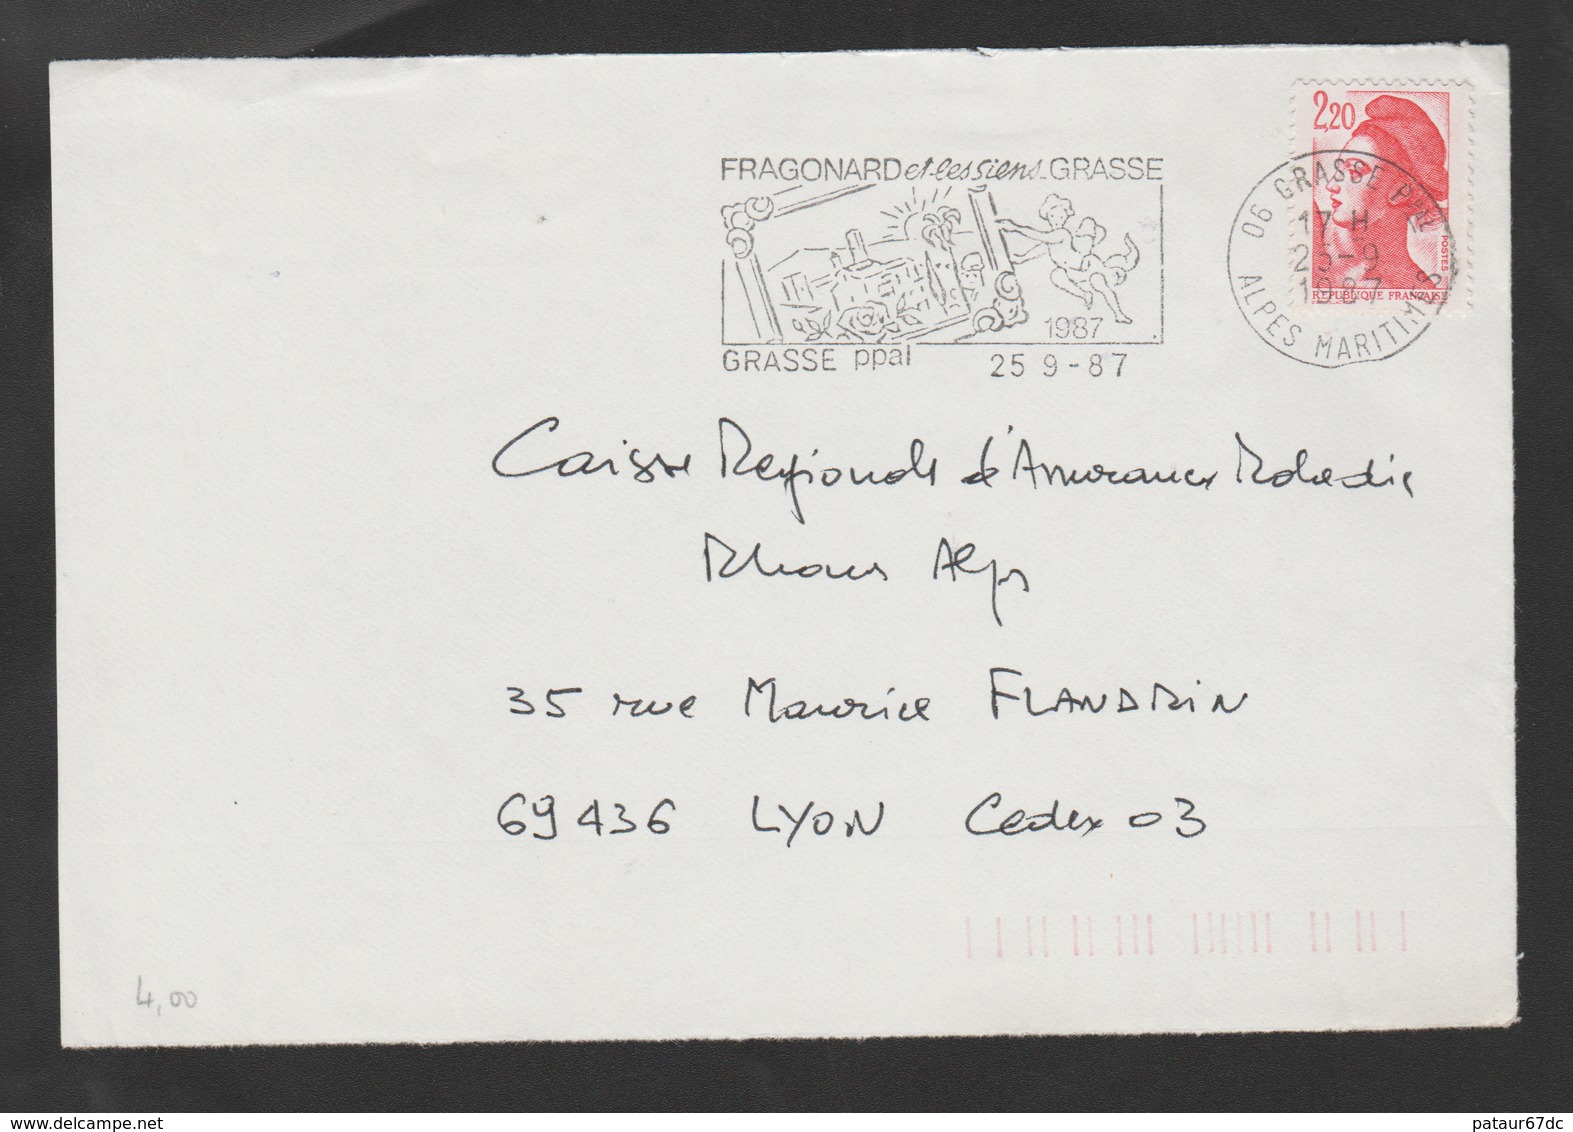 2,20
POSTES
REPUBLIQUE FRANÇAISE
FRAGONARD et les siens GRASSE
1987
GRASSE ppal 25 9-87
06 GRASSE PPAL
17 H
25-9
1987
ALPES MARITIMES
Caisse Regionale d'Assurance Maladie
Rhone Alpes
35 rue Maurice FLANDRIN
69436 LYON Cedex 03
4,00
www.delcampe.net
pataur67dc